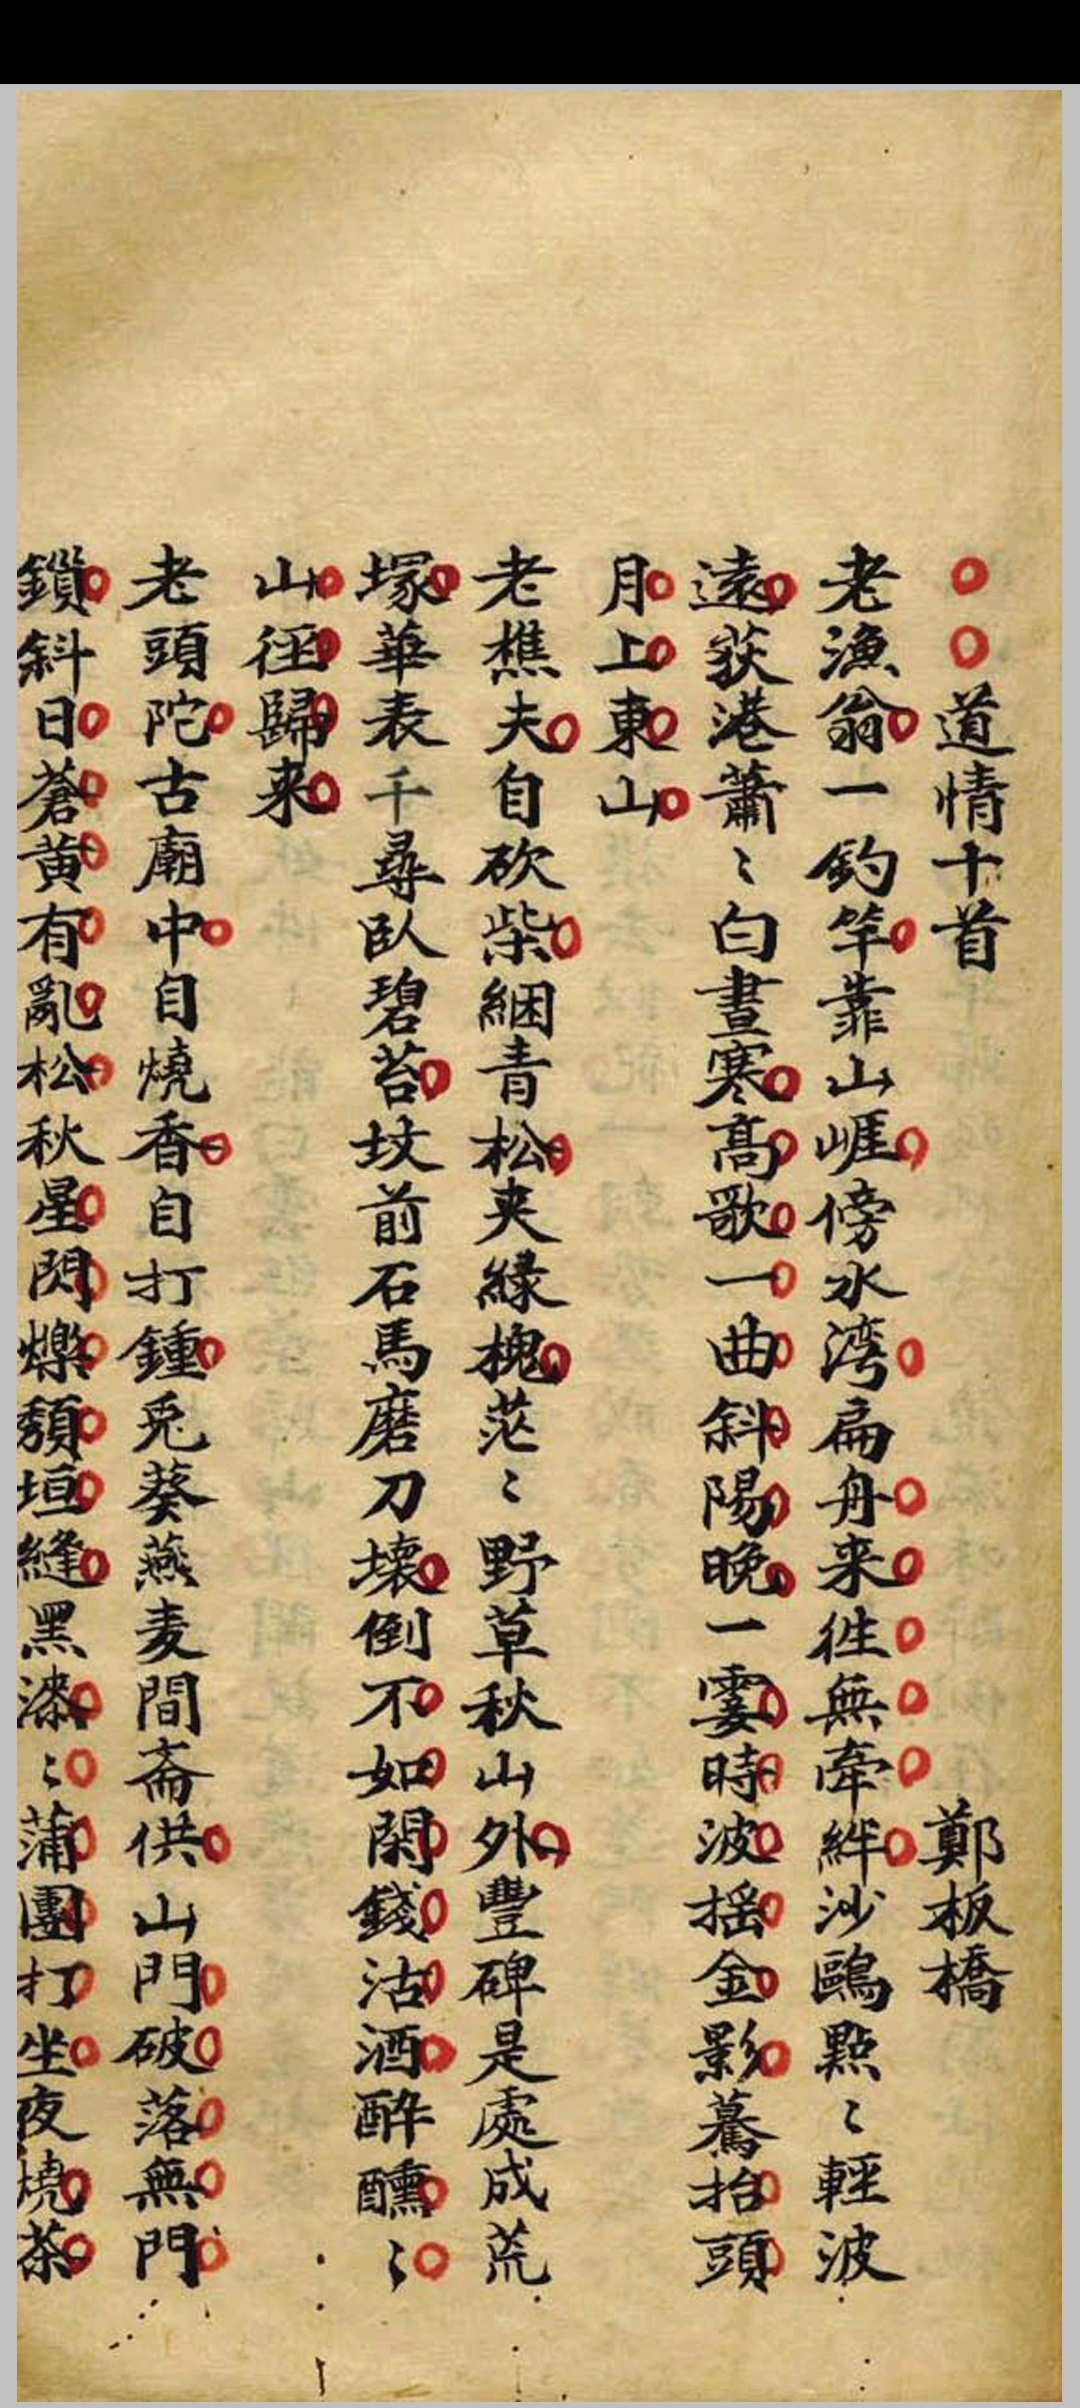 道情十首 鄭板橋
老漁翁一釣竿靠山崕傍水湾扁舟来徃無牽絆沙鷗點〻輕波
遠荻港蕭〻白晝寒髙歌一曲斜陽晚一霎時波摇金影驀抬頭
月上東山
老樵夫自砍柴綑青松夹緑槐茫〻野草秋山外豐碑是處成荒
塚華表千尋臥碧苔坟前石馬磨刀壊倒不如閑錢沽酒醉醺〻
山徑歸来
老頭陀古廟中自燒香自打鍾兎葵燕麦間斋供山門破落無門
鎖斜日蒼黄有亂松秋星閃爍頹垣縫黑漆〻蒲團打坐夜燒茶